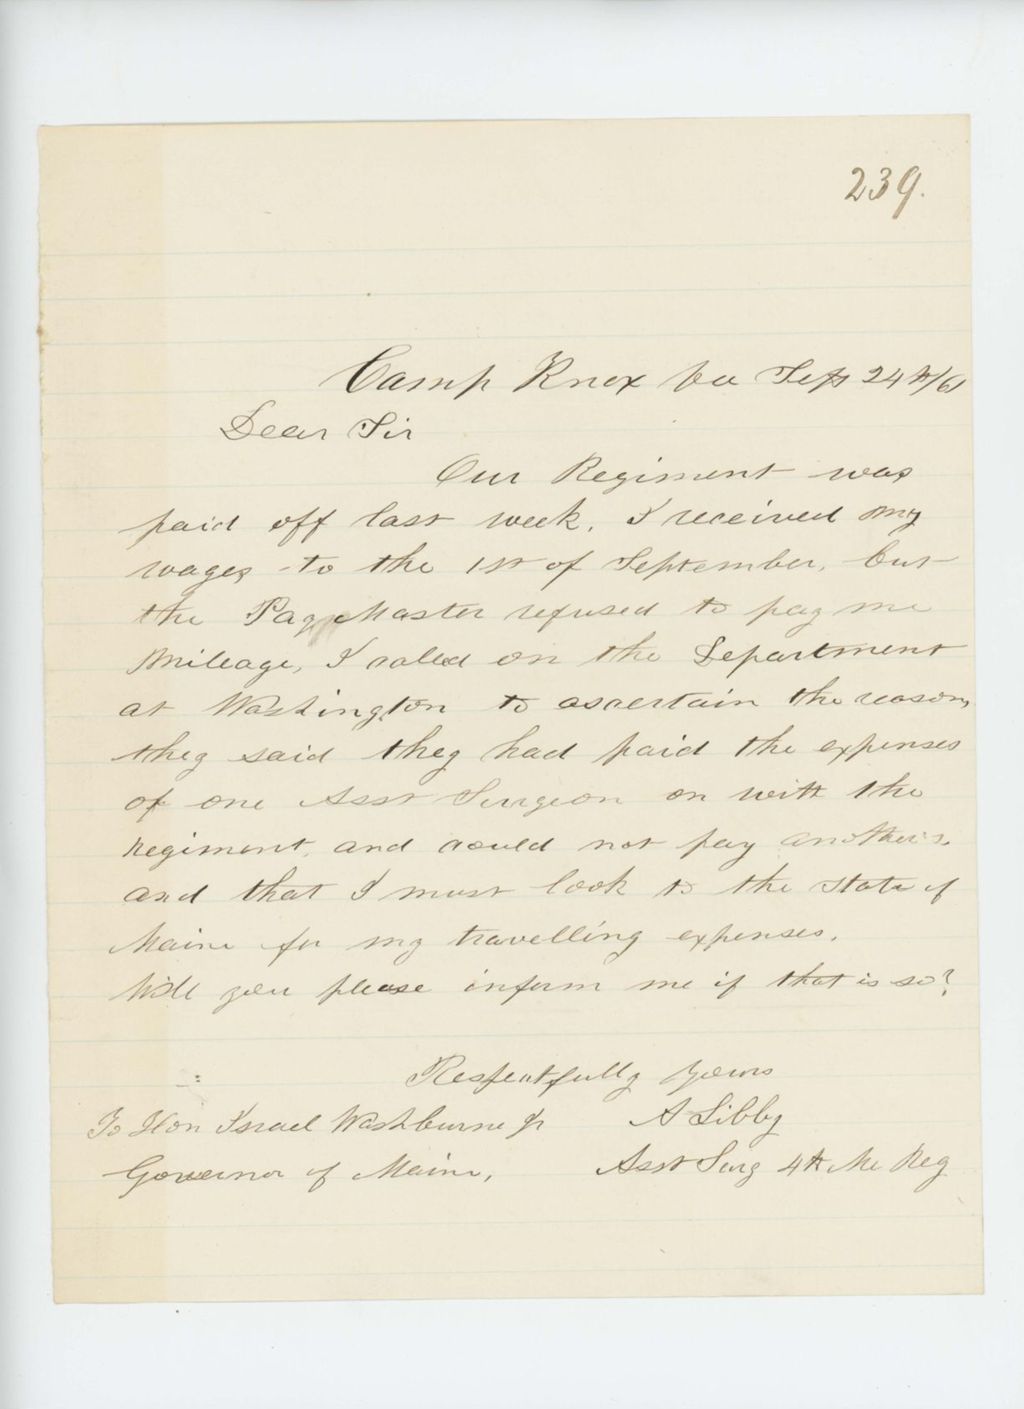 239.
Camp Knox Va Sept 24th/61
Dear Sir
Our Regiment was
paid off last week, I received my
wages to the 1st of September, but
the Pay Master refused to pay me
Mileage, I called on the Department
at Washington to ascertain the reason,
they said they had paid the expenses
of one Asst Surgeon on with the
regiment, and could not pay anothers,
and that I must look to the State of
Maine for my travelling expenses.
Will you please inform me if that is so?
Respectfully Yours
To Hon Israel Washburne Jr A Libby
Governor of Maine, Asst Surg 4th Me Reg